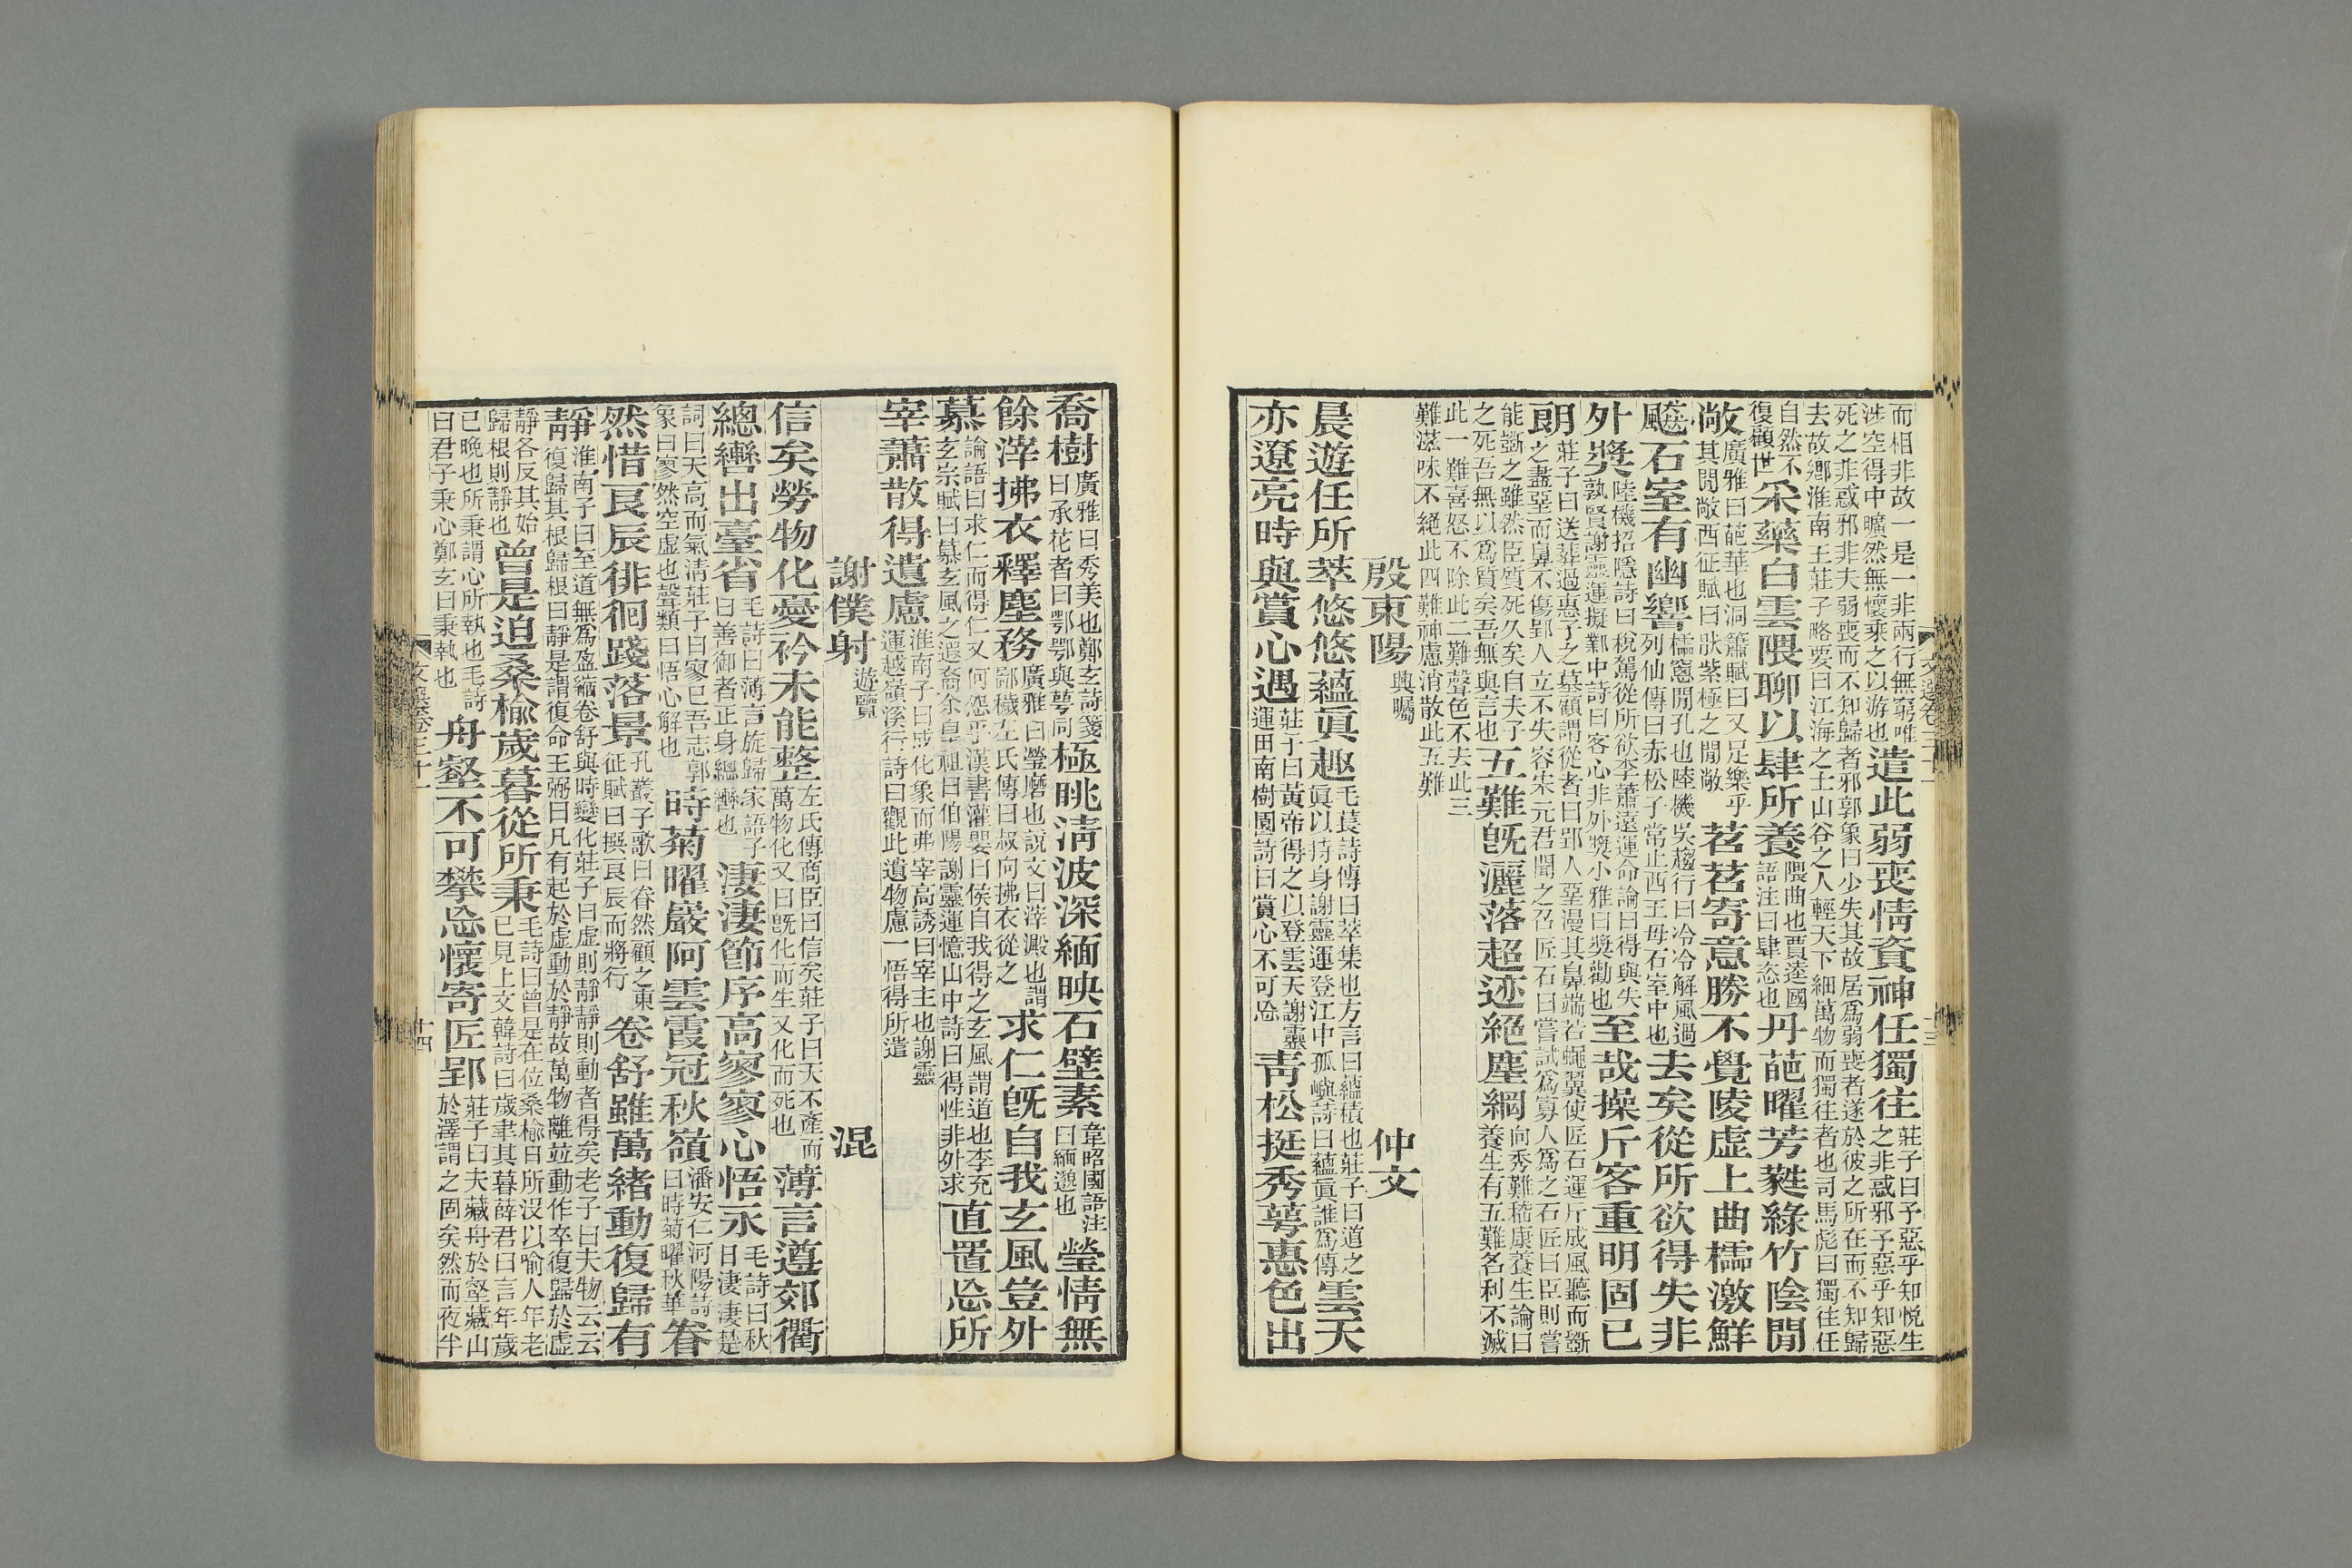 而相非故一是一非兩行無窮唯涉空得中曠然無懷乘之以游也遣此弱喪情資神任獨往莊子曰予惡乎知悅生之非惑邪予惡乎知惡
死之非惑邪非夫弱喪而不知歸者邪郭象曰少失其故居爲弱喪者遂於彼之所在而不知歸去故鄉淮南王莊子略要曰江海之士山谷之人輕天下細萬物而獨往者也司馬彪曰獨往任
自然不復顧世采藥白雲隈聊以肆所養隈曲也賈逵國語注曰肆恣也丹葩曜芳蕤綠竹陰閒
敞廣雅曰葩華也洞簫賦曰又足樂乎其閒敞西征賦曰狀紫極之閒敞苕苕寄意勝不覺陵虛上曲櫺激鮮
飇石室有幽響櫺窻閒孔也陸機吳趨行曰冷冷鮮風過列仙傳曰赤松子常止西王母石室中也去矣從所欲得失非
外獎陸機招隱詩曰稅駕從所欲李蕭遠運命論曰得與失孰賢謝靈運擬鄴中詩曰客心非外獎小雅曰獎勸也至哉操斤客重明固已
朗莊子曰送葬過惠子之墓顧謂從者曰郢人堊漫其鼻端若蠅翼使匠石運斤成風聽而斲之盡堊而鼻不傷郢人立不失容宋元君聞之召匠石曰嘗試爲寡人爲之石匠曰臣則嘗
能斲之雖然臣質死久矣自夫子之死吾無以爲質矣吾無與言也五難旣灑落超迹絕塵網向秀難嵇康養生論曰養生有五難名利不滅
此一難喜怒不除此二難聲色不去此三難滋味不絕此四難神慮消散此五難
殷東陽興矚 仲文
晨遊任所萃悠悠蘊眞趣毛萇詩傳曰萃集也方言曰蘊積也莊子曰道之眞以持身謝靈運登江中孤嶼詩曰蘊眞誰爲傳雲天
亦遼亮時與賞心遇莊子曰黃帝得之以登雲天謝靈運田南樹園詩曰賞心不可忩青松挺秀萼惠色出
喬樹廣雅曰秀美也鄭玄詩箋曰承花者曰鄂鄂與萼同極眺淸波深緬映石壁素韋昭國語注曰緬邈也瑩情無
餘滓拂衣釋塵務廣雅曰瑩磨也說文曰滓澱也謂鄙穢左氏傳曰叔向拂衣從之求仁旣自我玄風豈外
慕論語曰求仁而得仁又何怨乎漢書灌嬰曰侯自我得之玄風謂道也李充玄宗賦曰慕玄風之遐裔余皇祖曰伯陽謝靈運憶山中詩曰得性非外求直置忩所
宰蕭散得遺慮淮南子曰或化象而弗宰高誘曰宰主也謝靈運越嶺溪行詩曰觀此遺物慮一悟得所遣
謝僕射遊覽 混
信矣勞物化憂衿未能整左氏傳商臣曰信矣莊子曰天不產而萬物化又曰旣化而生又化而死也薄言遵郊衢
總轡出臺省毛詩曰薄言旋歸家語子曰善御者正身總轡也淒淒節序高寥寥心悟永毛詩曰秋日淒淒楚
詞曰天高而氣淸莊子曰寥已吾志郭象曰寥然空虛也聲類曰悟心解也時菊曜巖阿雲霞冠秋嶺潘安仁河陽詩曰時菊曜秋華眷
然惜良辰徘徊踐落景孔叢子歌曰眷然顧之東征賦曰撰良辰而將行卷舒雖萬緒動復歸有
靜淮南子曰至道無爲盈縮卷舒與時變化莊子曰虛則靜靜則動動者得矣老子曰夫物云云復歸其根歸根曰靜是謂復命王弼曰凡有起於虛動於靜故萬物離並動作卒復歸於虛
靜各反其始歸根則靜也曾是迫桑榆歲暮從所秉毛詩曰曾是在位桑榆日所沒以喻人年老已見上文韓詩曰歲聿其暮薛君曰言年歲
已晚也所秉謂心所執也毛詩曰君子秉心鄭玄曰秉執也舟壑不可攀忩懷寄匠郢莊子曰夫藏舟於壑藏山於澤謂之固矣然而夜半